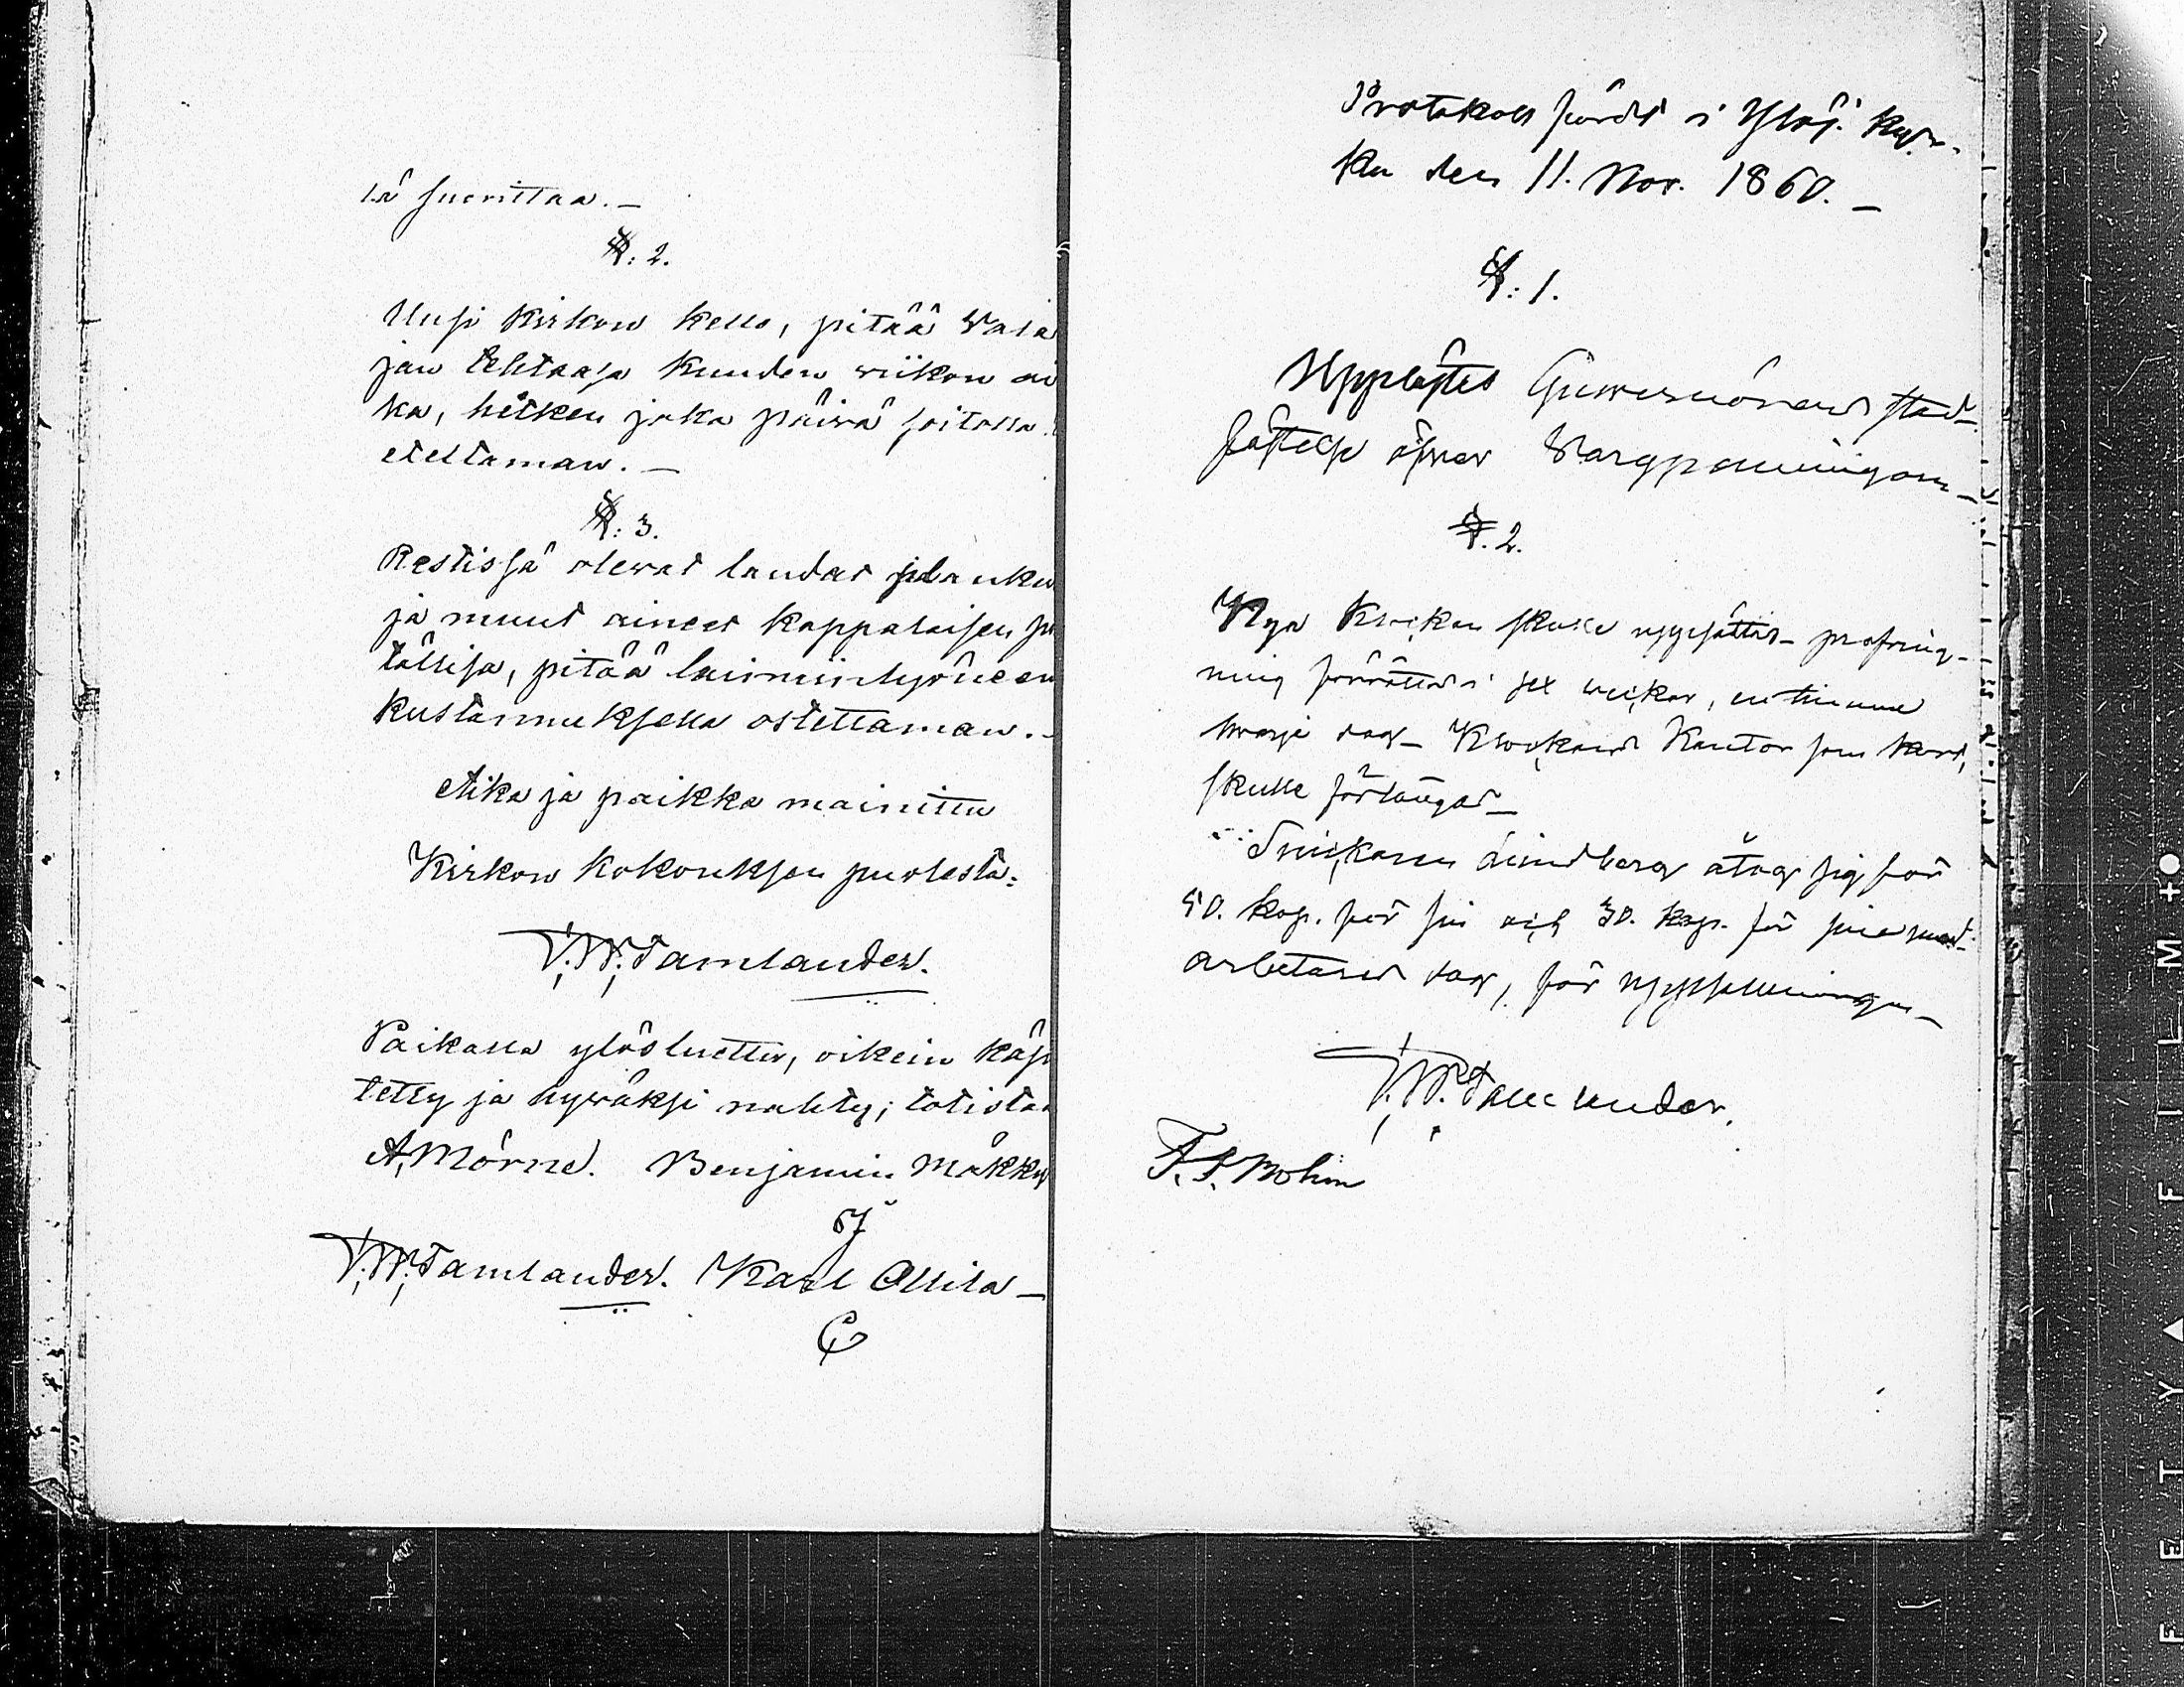 sä suorittaa. —
§: 2.
Uusi Kirkon kello, pitää Wala
jan tehtaasa kuuden wiikon ai
ka, hetken joka päiwä soitossa
eteltaman. —
§: 3.
Restissä olewat laudat plankut
ja muut aineet kappalaisen pu
tällisa, pitää laiminlyöneen
kustannuksella ostettaman. -
Aika ja paikka mainittu
Kirkon kokouksen puolesta:
V. W. Tamlander.
Paikalla ylösluettu, oikein käsi
tetty ja hywäksi nähty; todista
A. Mörne. Benjamin Mäkky
V. W. Tamlander. Karl Ollila —
Protokoll fördt i Ylöj. kyr-
ka den 11. Nov. 1860. —
§: 1.
Upplästes Guvernörens stad-
fästelse öfver Vargpenningarne —
§. 2.
Nya Klockan skulle uppsättas — profring-
ning förrättas i sex veckor, en timme
hvarje dag — Klockans Kantor som hörd,
skulle förlängas —
Snickaren Lindberg åtog sig för
50. kop. för sin och 30. kop. för sine med-
arbetares dag, för uppsättningen —
V. W. Tamlander.
F. F. Molin
F E E T Y ▲ F I L M